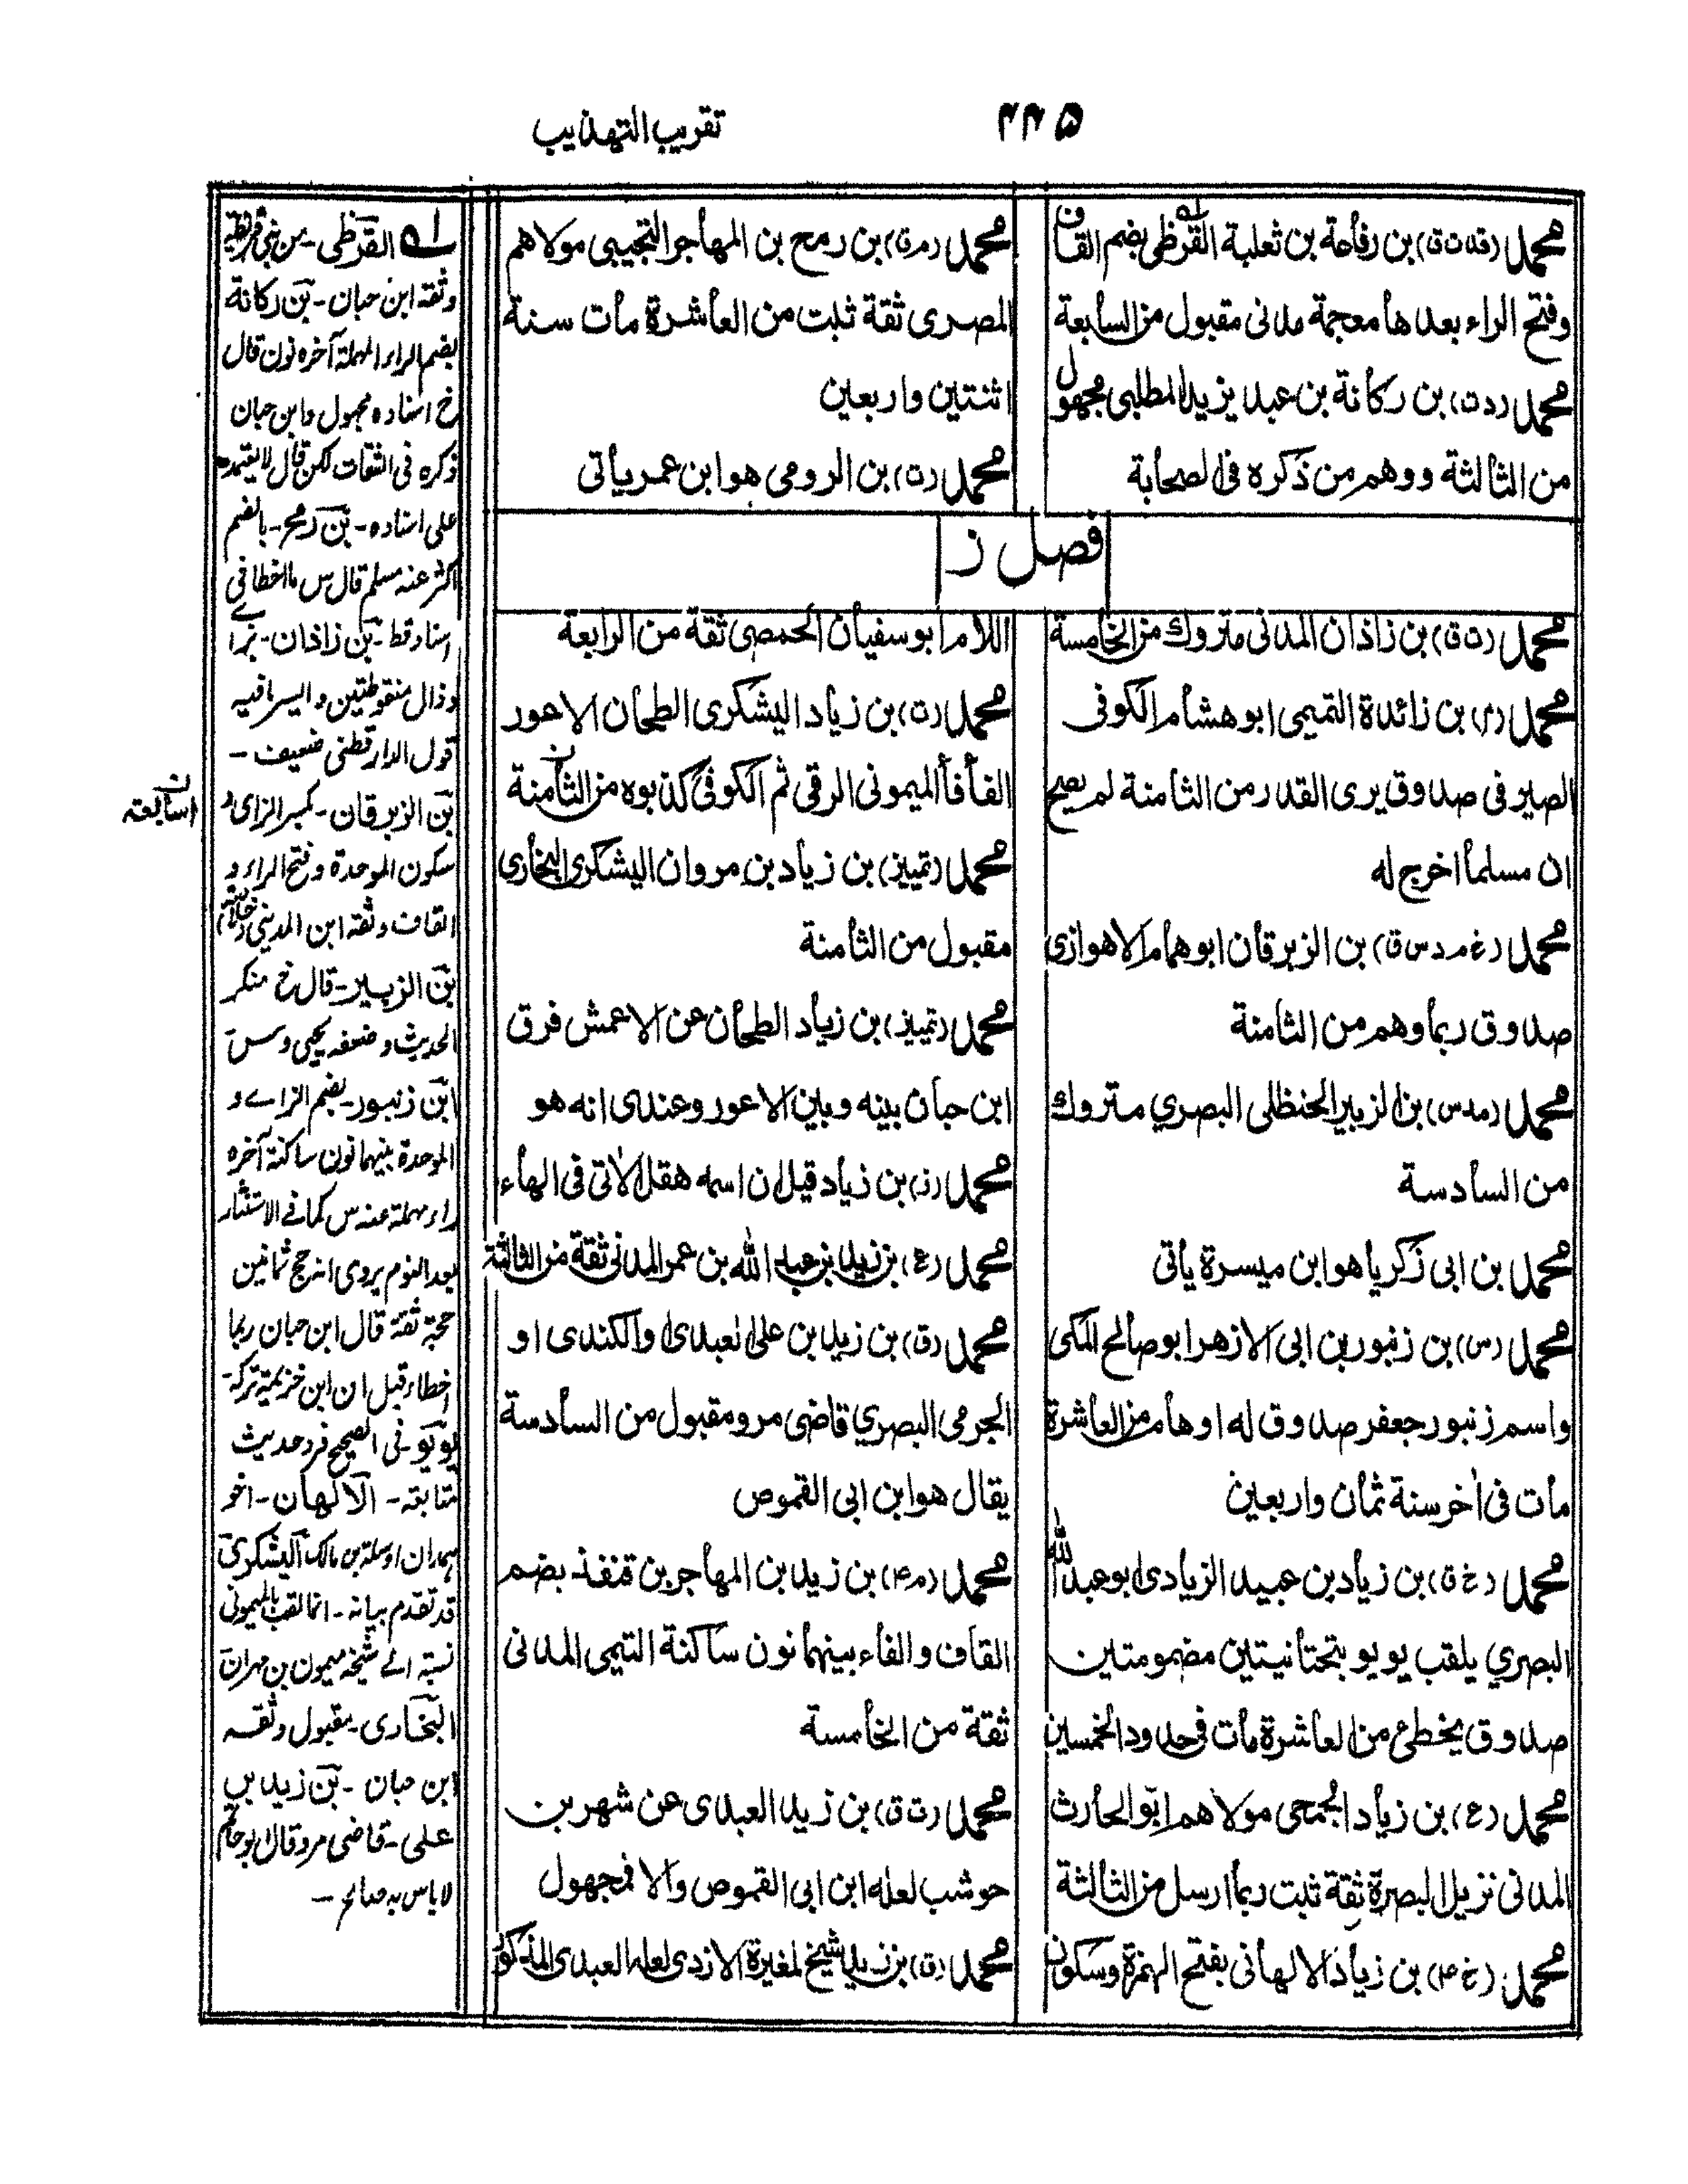 تقريب التهذيب
۴۴۵
محمد (قد ت ق) بن رفاعة بن ثعلبة القرظى بضم القاف
وفتح الراء بعدها معجمة مدنى مقبول من السابعة
محمد (د ت) بن ركانة بن عبد يزيد المطلبى مجهول
من الثالثة ووهم من ذكره فى الصحابة
محمد (م ق) بن رمح بن المهاجر التجيبى مولاهم
المصرى ثقة ثبت من العاشرة مات سنة
اثنتين واربعين
محمد (ت) بن الرومى هو ابن عمر ياتى
فصل ز
محمد (ت ق) بن زاذان المدنى متروك من الخامسة
محمد (م) بن زائدة التميمى ابو هشام الكوفى
الصيرفى صدوق يرى القدر من الثامنة لم يصح
ان مسلما اخرج له
محمد (خ م د س ق) بن الزبرقان ابو همام الاهوازى
صدوق ربما وهم من الثامنة
محمد (مد س) بن الزبير الحنظلى البصري متروك
من السادسة
محمد بن ابى زكريا هو ابن ميسرة يأتى
محمد (س) بن زنبور بن ابى الازهر ابو صالح المكى
واسم زنبور جعفر صدوق له اوهام من العاشرة
مات فى اخر سنة ثمان واربعين
محمد (خ ق) بن زياد بن عبيد الزيادى ابو عبد الله
البصري يلقب يويو بتحتانيتين مضمومتين
صدوق يخطئ من العاشرة مات فى حدود الخمسين
محمد (ع) بن زياد الجمحى مولاهم ابو الحارث
المدنى نزيل البصرة ثقة ثبت ربما ارسل من الثالثة
محمد (خ ۴) بن زياد الالهانى بفتح الهمزة وسكون
اللام ابو سفيان الحمصى ثقة من الرابعة
محمد (ت) بن زياد اليشكرى الطحان الاعور
الفأفأ الميمونى الرقى ثم الكوفى كذبوه من الثامنة
محمد (تمييز) بن زياد بن مروان اليشكرى البخارى
مقبول من الثامنة
محمد (تمييز) بن زياد الطحان عن الاعمش فرق
ابن حبان بينه وبين الاعور وعندى انه هو
محمد (ز) بن زياد قيل ان اسمه هقل الأتى فى الهاء
محمد (ع) بن زيد بن عبد الله بن عمر المدنى ثقة من الثالثة
محمد (ق) بن زيد بن على العبدى او الكندى او
الجرمى البصري قاضى مرو مقبول من السادسة
يقال هو ابن ابى القموص
محمد (م ۴) بن زيد بن المهاجر بن قنفذ بضم
القاف والفاء بينهما نون ساكنة التيمى المدنى
ثقة من الخامسة
محمد (ت ق) بن زيد العبدى عن شهر بن
حوشب لعله ابن ابى القموص والا فمجهول
محمد (ق) بن زيد شيخ لمغيرة الازدى لعله العبدى المذكور
له القرظى - من بنى قريظة
وثقه ابن حبان - بن ركانة
بضم الراء المهملة آخره نون قال
خ اسناده مجهول وابن حبان
ذكره فى الثقات لكن قال لا يعتمد
على اسناده - بن رمح - بالضم
اكثر عنه مسلم قال س ما اخطا فى
اسناد قط - بن زاذان - بزاے
وذال منقوطتين
قول الدارقطنى ضعيف -
بن الزبرقان - بكسر الزاى و
سكون الموحدة وفتح الراء و
القاف وثقه ابن المدينى
بن الزبير - قال خ منكر
الحديث وضعفه يحيى وس
ابن زنبور - بضم الزاے و
الموحدة بينهما نون ساكنة آخره
راء مهملة عنه س كما فے
بعد النوم يروى انه حج ثمانين
حجة ثقة قال ابن حبان ربما
اخطاء قيل ان ابن خزيمة تركه
يويو - فى الصحيح فرد حديث
متابعة - الالهان - اخو
همدان اوسلة بن مالك اليشكرى
قد تقدم بيانه - انما لقب بالميمونى
نسبة الے شيخه ميمون بن مهران
البخارى - مقبول وثقه
ابن حبان - بن زيد بن
على - قاضى مرو قال ابو حاتم
لا باس به صالح -